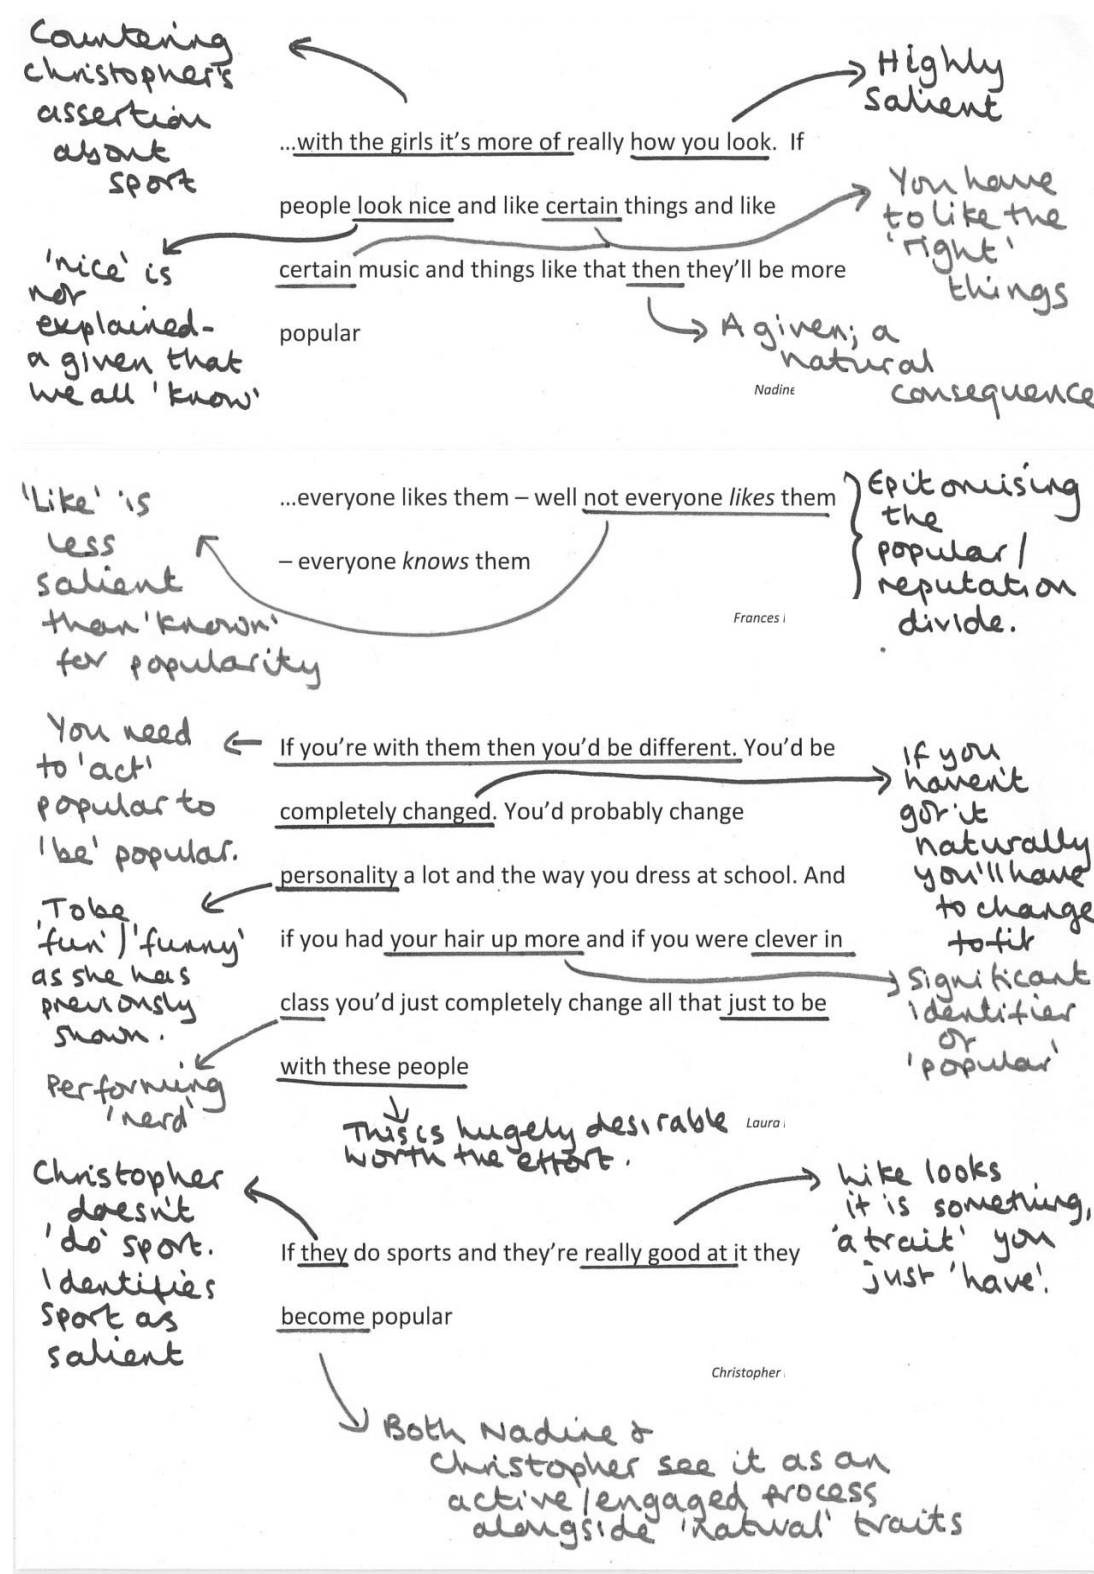 Countering
christopher's
assertion
about
sport
Highly
salient
...with the girls it's more of really how you look. If
people look nice and like certain things and like
certain music and things like that then they'll be more
popular
Nadine
You have
to like the
'right'
things
'nice' is
not
explained-
a given that
we all 'know'
A given; a
natural
consequence
'Like' is
less
salient
than 'known'
for popularity
...everyone likes them – well not everyone likes them
– everyone knows them
Frances
Epitomising
the
popular/
reputation
divide.
You need
to 'act'
popular to
'be' popular.
If you're with them then you'd be different. You'd be
completely changed. You'd probably change
personality a lot and the way you dress at school. And
if you had your hair up more and if you were clever in
class you'd just completely change all that just to be
with these people
Laura
If you
haven't
got it
naturally
you'll have
to change
to fit
To be
'fun'/'funny'
as she has
previously
shown.
Significant
identifier
of
'popular'
Performing
'nerd'
This is hugely desirable
worth the effort.
Christopher
doesn't
'do' sport.
Identifies
sport as
salient
If they do sports and they're really good at it they
become popular
Christopher
Like looks
it is something,
'a trait' you
just 'have'.
Both Nadine &
Christopher see it as an
active/engaged process
alongside 'natural' traits